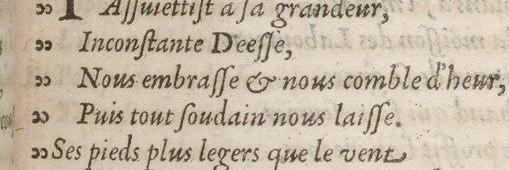 ɔɔ T Aſſuiettiſt à ſa grandeur,
ɔɔ Inconſtante Deeſſe,
ɔɔ Nous embraſſe & nous comble d'heur,
ɔɔ Puis tout ſoudain nous laiſſe.
ɔɔ Ses pieds plus legers que le vent